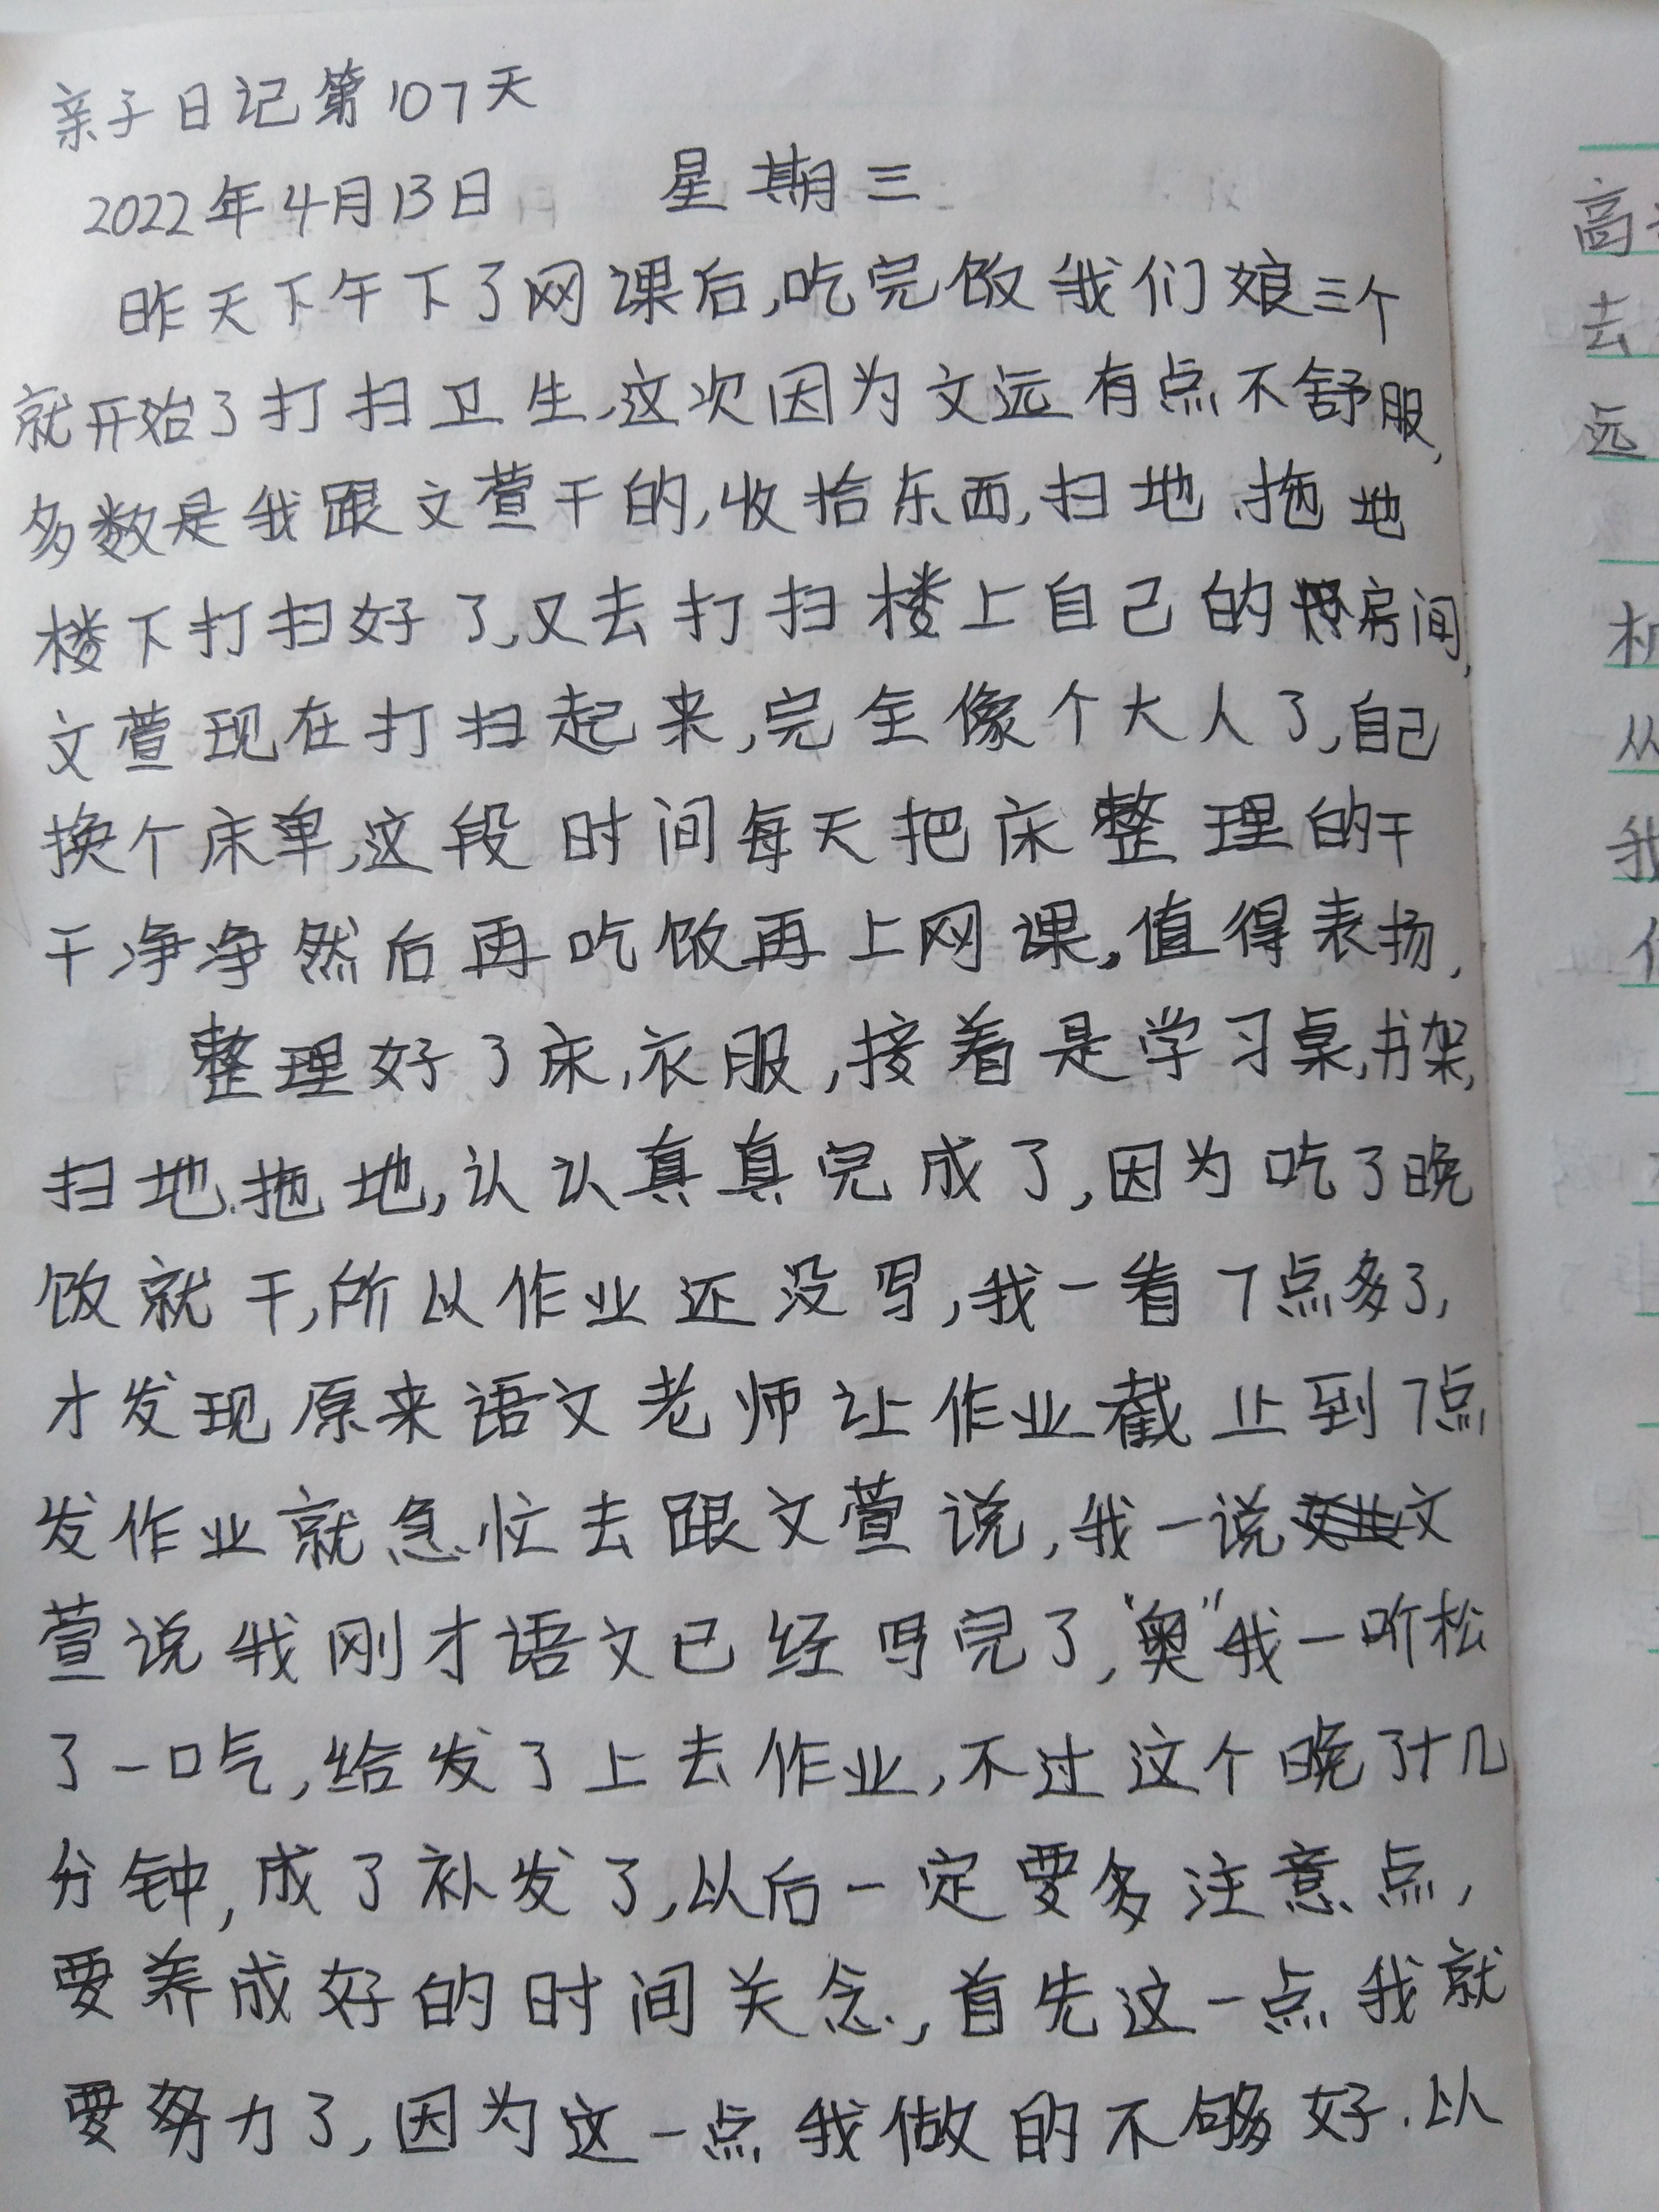 亲子日记第107天
2022年4月13日 星期三
昨天下午下了网课后,吃完饭我们娘三个
就开始了打扫卫生,这次因为文远有点不舒服,
多数是我跟文萱干的,收拾东西,扫地、拖地
楼下打扫好了,又去打扫楼上自己的房间,
文萱现在打扫起来,完全像个大人了,自己
换个床单,这段时间每天把床整理的干
干净净然后再吃饭再上网课,值得表扬,
整理好了床,衣服,接着是学习桌,书架,
扫地、拖地,认认真真完成了,因为吃了晚
饭就干,所以作业还没写,我一看7点多了,
才发现原来语文老师让作业截止到7点
发作业就急忙去跟文萱说,我一说文
萱说我刚才语文已经写完了,“奥”我一听松
了一口气,给发了上去作业,不过这个晚了十几
分钟,成了补发了,以后一定要多注意点,
要养成好的时间关念,首先这一点我就
要努力了,因为这一点我做的不够好.以
高
去
远
从
我